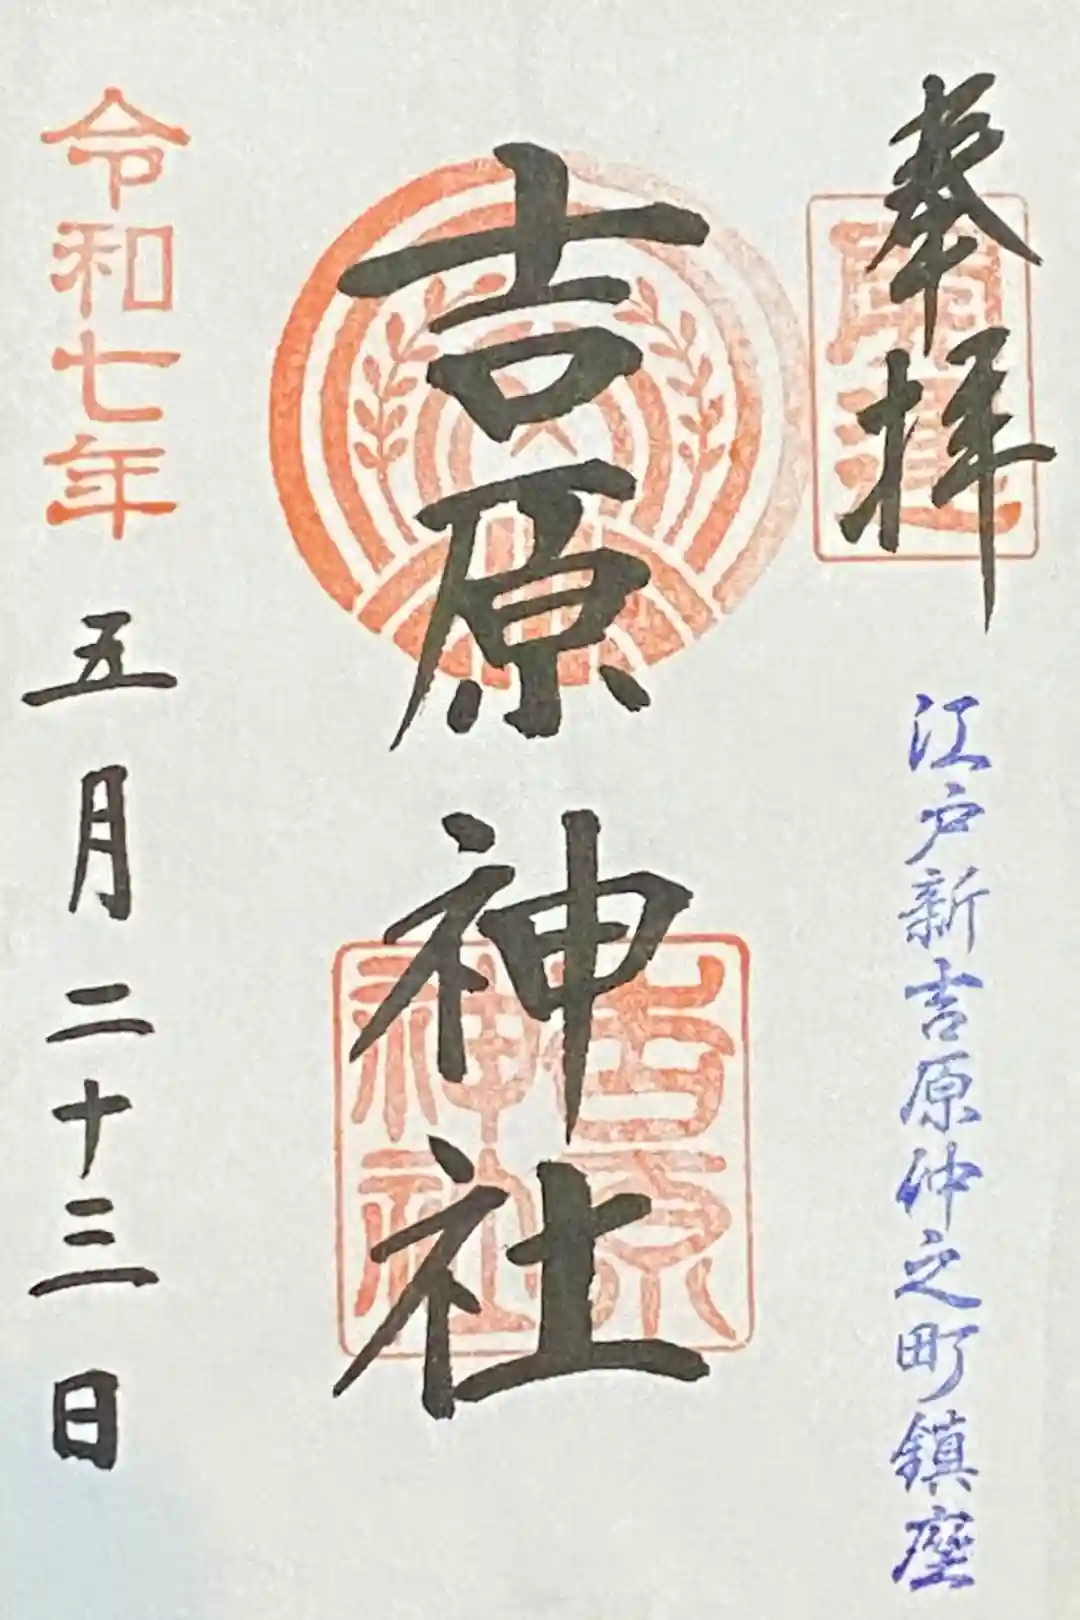 奉拝
開運
江戸新吉原仲之町鎮座
吉原神社
吉原神社
令和七年五月二十三日